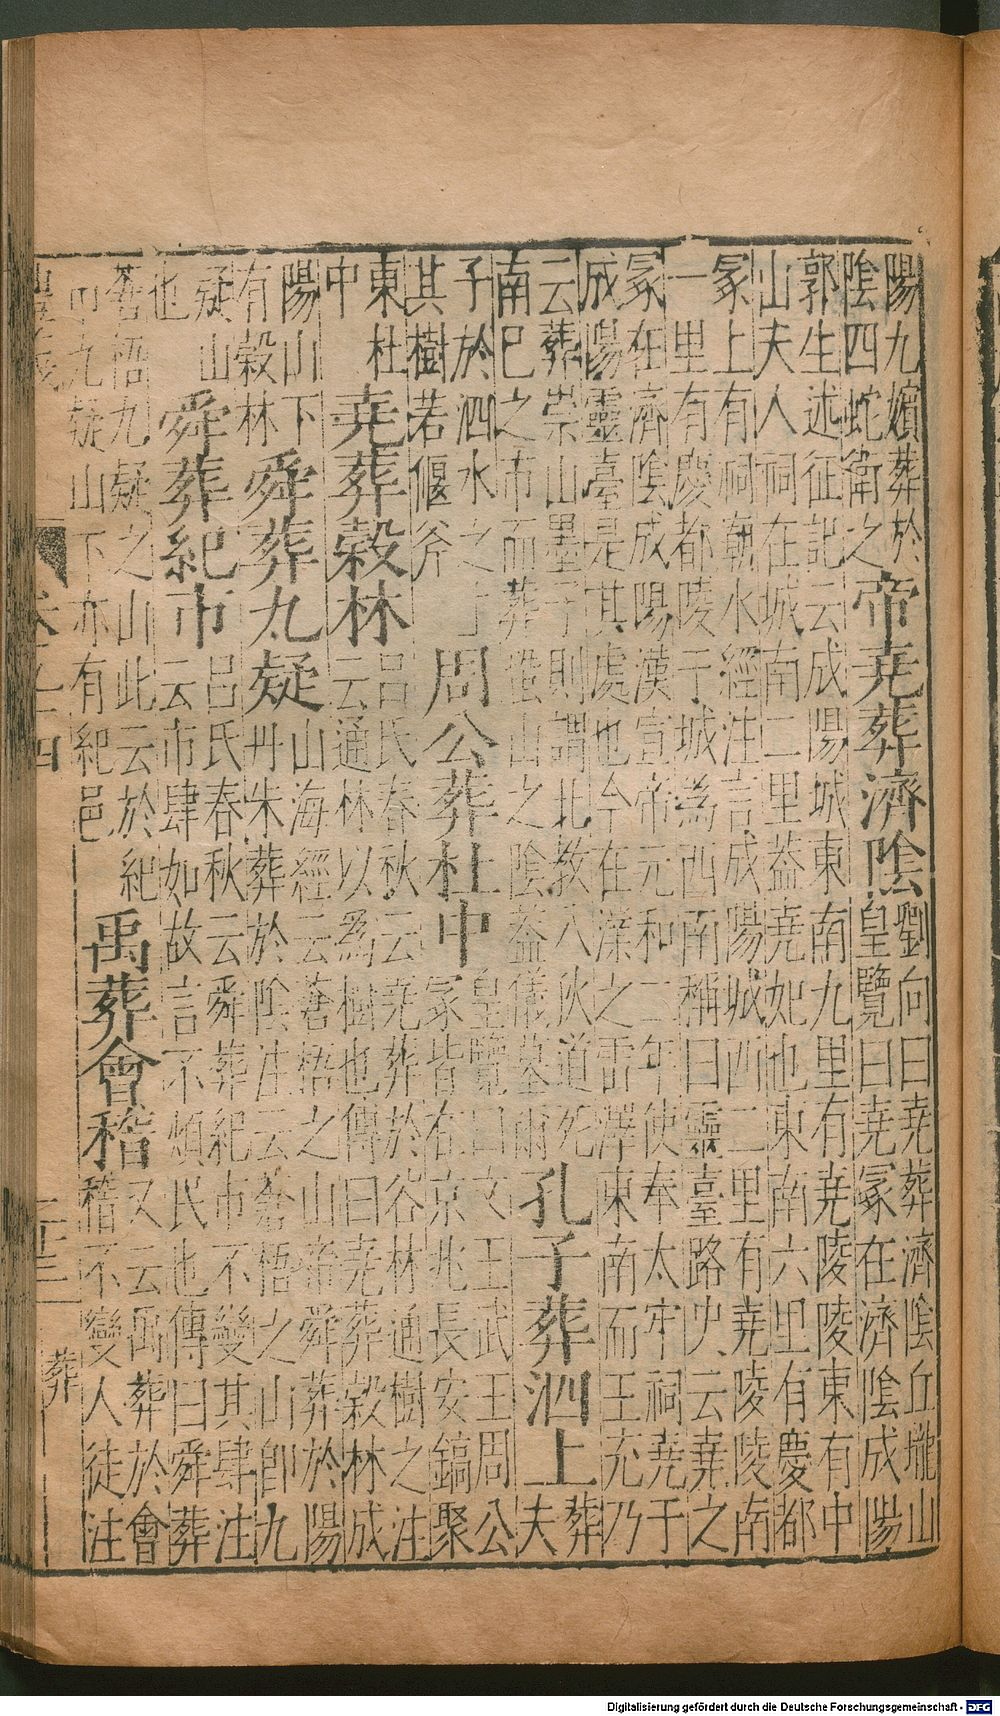 陽九嬪葬於
陰四蛇衞之
帝堯葬濟陰
劉向曰堯葬濟陰丘壠山
皇覽曰堯冢在濟陰成陽
郭生述征記云成陽城東南九里有堯陵陵東有中
山夫人祠在城南二里葢堯妃也東南六里有慶都
冢上有祠廟水經注言成陽城西二里有堯陵陵南
一里有慶都陵于城爲西南稱曰靈臺路史云堯之
冢在濟陰成陽漢宣帝元和二年使奉太牢祠堯于
成陽靈臺是其處也今在濮之雷澤東南而王充乃
云葬崇山墨子則謂北教八狄道死
南巴之市而葬蛩山之陰葢儀墓爾
孔子葬泗上
葬
夫
子於泗水之上
其樹若偃斧
周公葬杜中
皇覽曰文王武王周公
冢皆在京兆長安鎬聚
東杜
中
堯葬榖林
呂氏春秋云堯葬於谷林通樹之注
云通林以爲樹也傳曰堯葬榖林成
陽山下
有榖林
舜葬九疑
山海經云蒼梧之山帝舜葬於陽
丹朱葬於陰注云蒼梧之山卽九
疑山
也
舜葬紀市
呂氏春秋云舜葬紀市不變其肆注
云市肆如故言不煩民也傳曰舜葬
蒼梧九疑之山此云於紀
市九疑山下亦有紀邑
禹葬會稽
又云禹葬於會
稽不變人徒注
卷之二四
二十三
葬
Digitalisierung gefördert durch die Deutsche Forschungsgemeinschaft - DFG